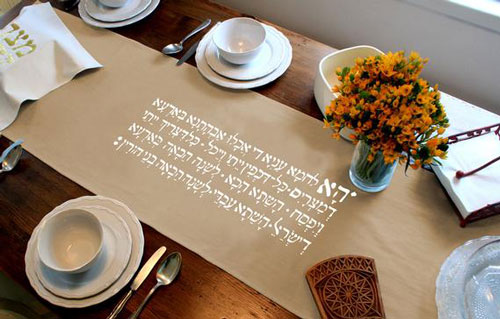 הָא לַחְמָא עַנְיָא דִי אֲכָלוּ אַבְהָתָנָא בְּאַרְעָא
דְמִצְרָיִם. כָּל דִכְפִין יֵיתֵי וְיֵכֹל. כָּל דִצְרִיךְ יֵיתֵי
וְיִפְסַח. הָשַׁתָּא הָכָא. לְשָׁנָה הַבָּאָה בְּאַרְעָא
דְיִשְׂרָאֵל. הָשַׁתָּא עַבְדֵי לְשָׁנָה הַבָּאָה בְּנֵי חוֹרִין:
מצה